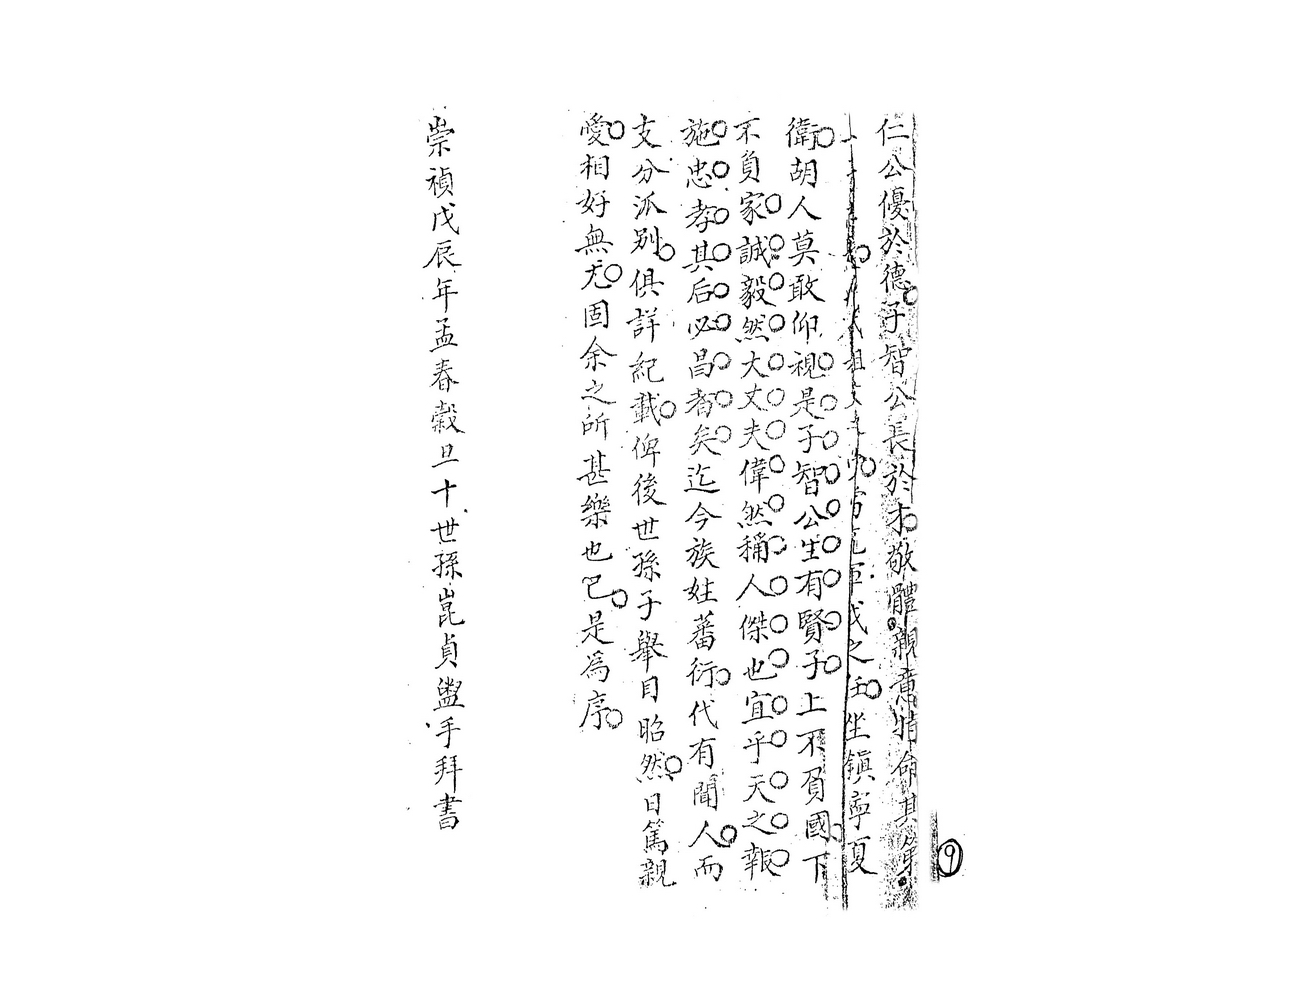 仁公優於德子智公長於才敬體親意特命其第
祖 之任坐鎮寧夏
衛胡人莫敢仰視是子智公生有賢子上不負國下
不負家誠毅然大丈夫偉然稱人傑也宜乎天之報
施忠孝其后必昌者矣迄今族姓蕃衍代有聞人而
支分派別俱詳紀載俾後世孫子舉目昭然日篤親
愛相好無尤固余之所甚樂也已是為序
崇禎戊辰年孟春穀旦十世孫崑貞盥手拜書
⑨